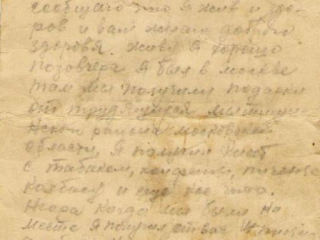 сообщаю что я жив и здо-
ров и вам желаю доброго
здоровя. живу я хорошо
позовчера я был в москве
там мы получили подарки
от трудящихся мытищин-
ского района московской
области, я получил кисет
с табаком, конфеты, печенье
колбасу и еще кое что.
Жора когда мы были на
месте я получил от вас